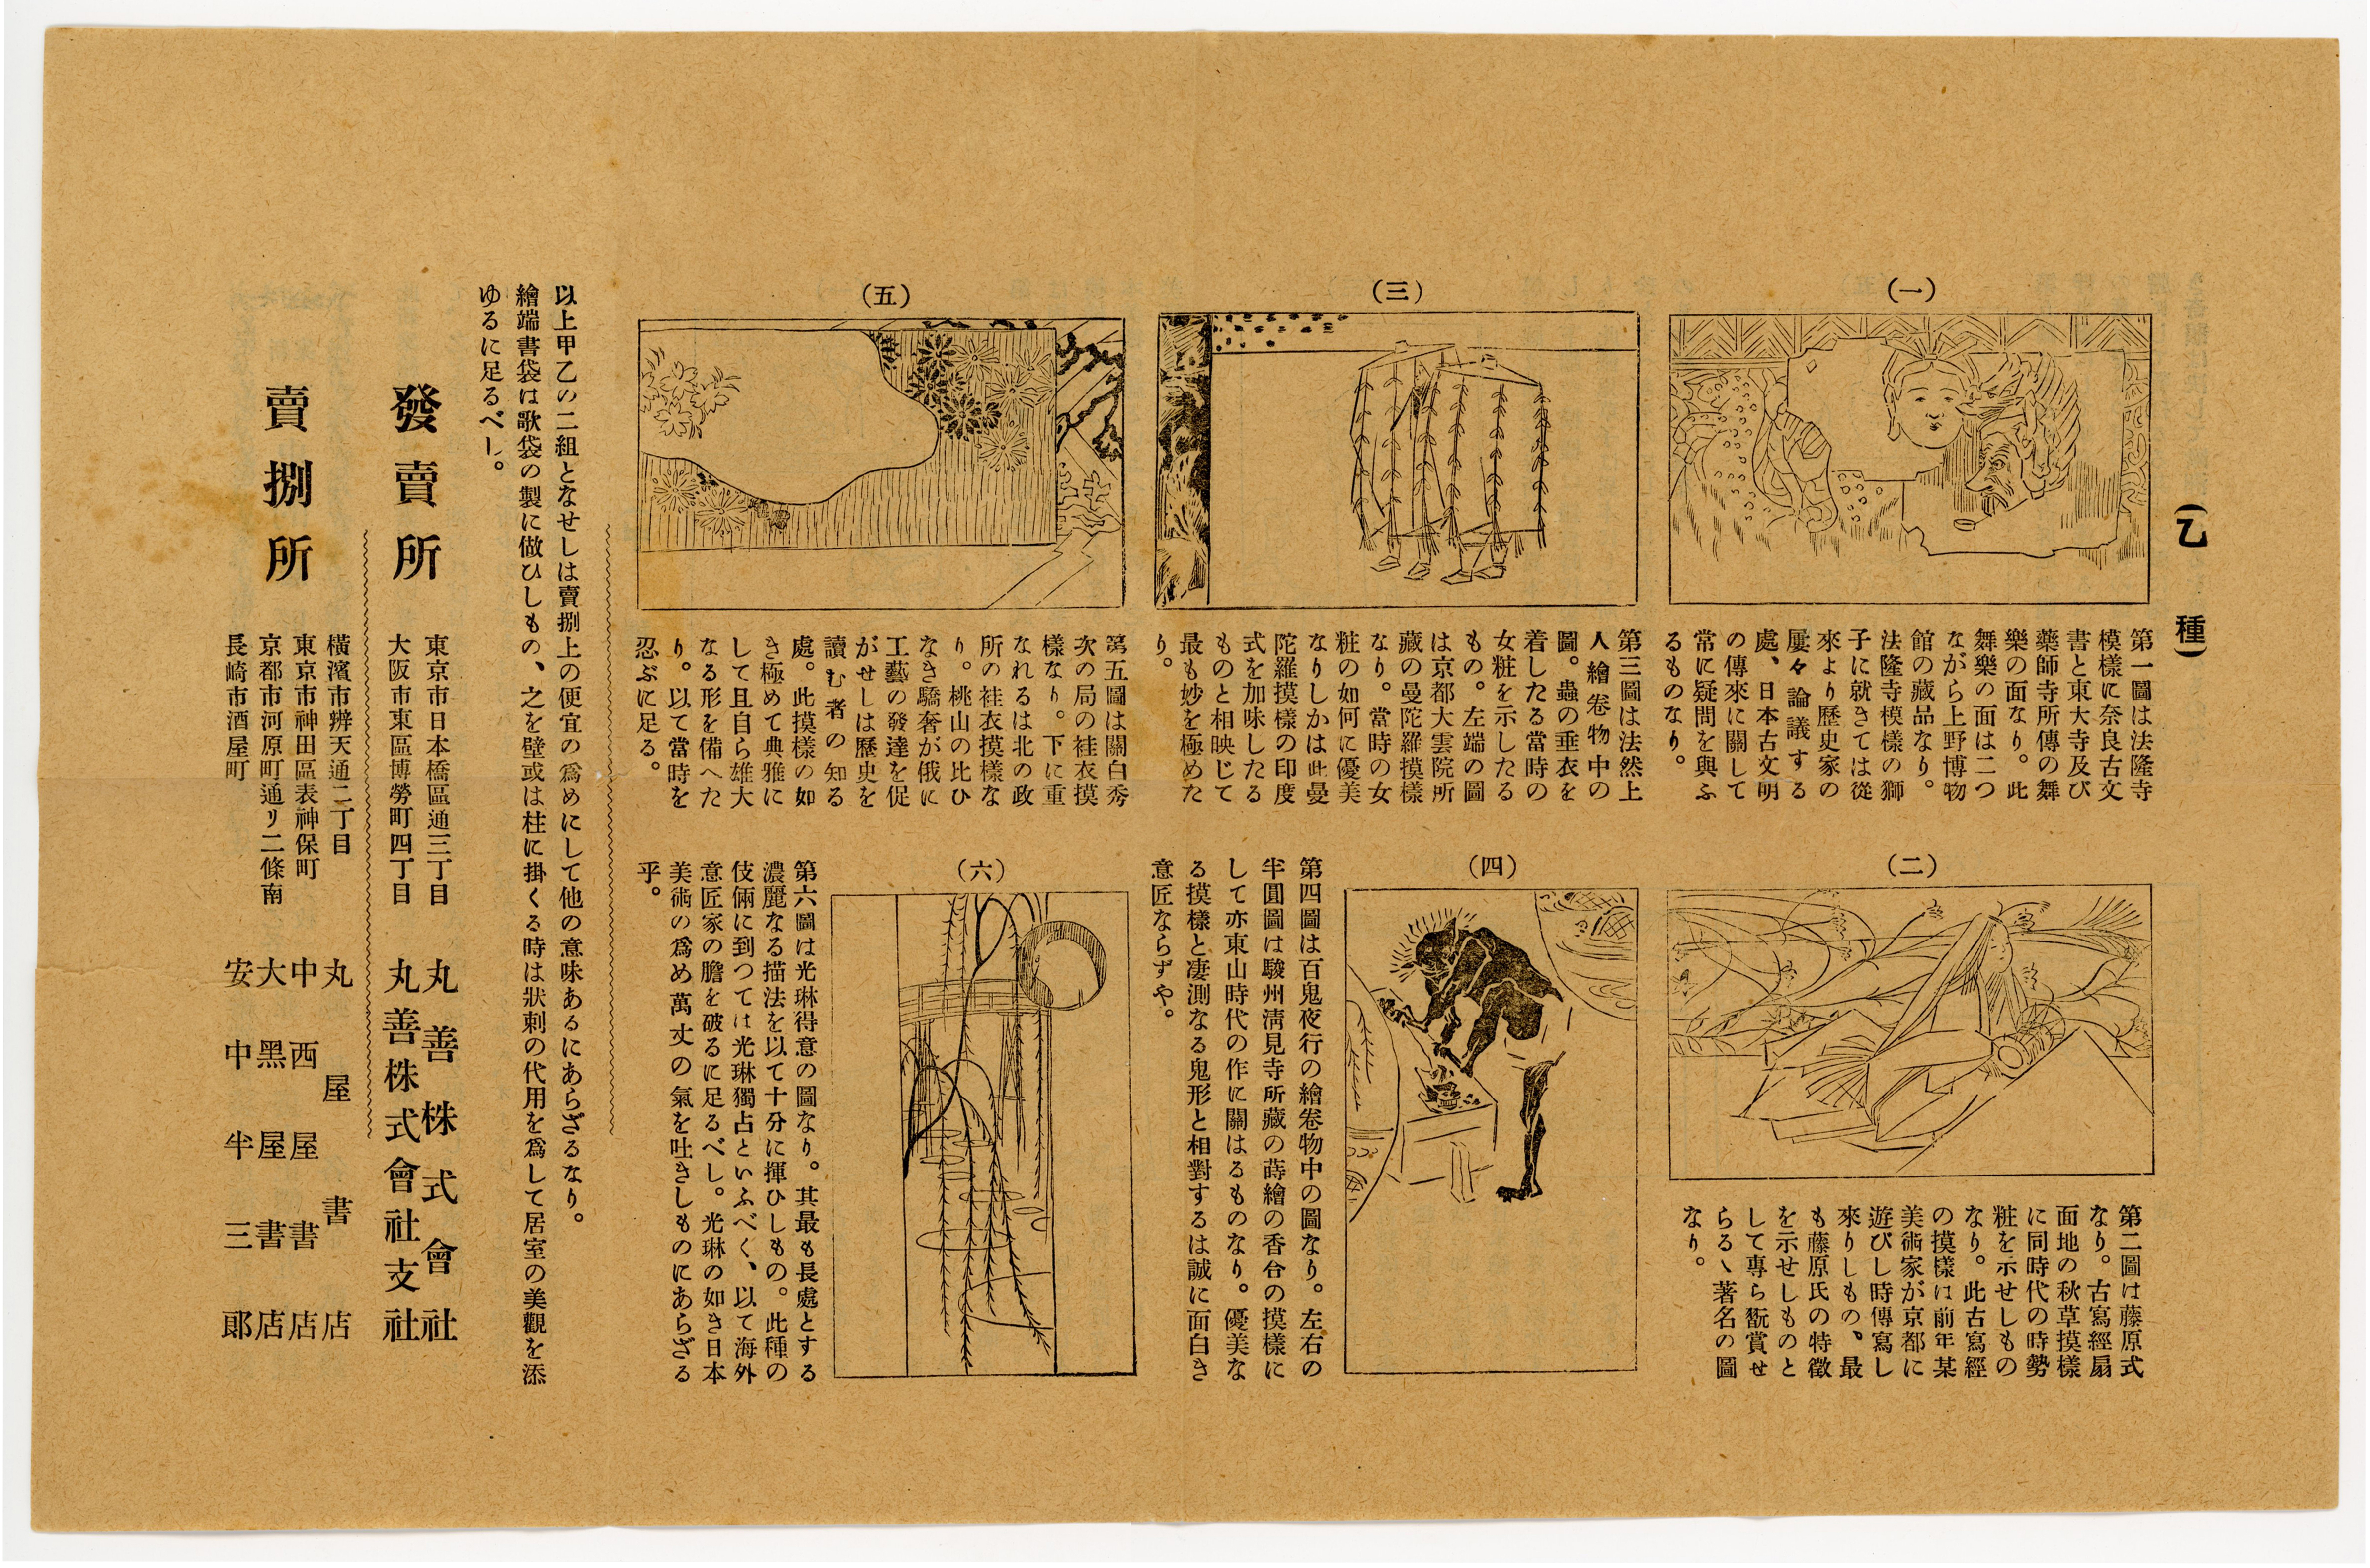 (乙種)
(一)
第一圖は法隆寺
模樣に奈良古文
書と東大寺及び
藥師寺所傳の舞
樂の面なり。此
舞樂の面は二つ
ながら上野博物
館の藏品なり。
法隆寺模樣の獅
子に就きては從
來より歷史家の
屢々論議する
處、日本古文明
の傳來に關して
常に疑問を與ふ
るものなり。
(二)
第二圖は藤原式
なり。古寫經扇
面地の秋草摸樣
に同時代の時勢
粧を示せしもの
なり。此古寫經
の摸樣は前年某
美術家が京都に
遊びし時傳寫し
來りしもの、最
も藤原氏の特徵
を示せしものと
して專ら翫賞せ
らるゝ著名の圖
なり。
(三)
第三圖は法然上
人繪卷物中の
圖。蟲の垂衣を
着したる當時の
女粧を示したる
もの。左端の圖
は京都大雲院所
藏の曼陀羅摸樣
なり。當時の女
粧の如何に優美
なりしかは此曼
陀羅摸樣の印度
式を加味したる
ものと相映じて
最も妙を極めた
り。
(四)
第四圖は百鬼夜行の繪卷物中の圖なり。左右の
半圓圖は駿州淸見寺所藏の蒔繪の香台の摸樣に
して亦東山時代の作に關はるものなり。優美な
る摸樣と凄測なる鬼形と相對するは誠に面白き
意匠ならずや。
(五)
第五圖は關白秀
次の局の袿衣摸
樣なり。下に重
なれるは北の政
所の袿衣摸樣な
り。桃山の比ひ
なき驕奢が俄に
工藝の發達を促
がせしは歷史を
讀む者の知る
處。此摸樣の如
き極めて典雅に
して且自ら雄大
なる形を備へた
り。以て當時を
忍ぶに足る。
(六)
第六圖は光琳得意の圖なり。其最も長處とする
濃麗なる描法を以て十分に揮ひしもの。此種の
伎倆に到つては光琳獨占といふべく、以て海外
意匠家の膽を破るに足るべし。光琳の如き日本
美術の爲め萬丈の氣を吐きしものにあらざる
乎。
以上甲乙の二組となせしは賣捌上の便宜の爲めにして他の意味あるにあらざるなり。
繪端書袋は歌袋の製に倣ひしもの、之を壁或は柱に掛くる時は狀刺の代用を爲して居室の美觀を添
ゆるに足るべし。
發賣所
東京市日本橋區通三丁目 丸善株式會社
大阪市東區博勞町四丁目 丸善株式會社支社
賣捌所
橫濱市辨天通二丁目 丸屋書店
東京市神田區表神保町 中西屋書店
京都市河原町通リ二條南 大黑屋書店
長崎市酒屋町 安中半三郎